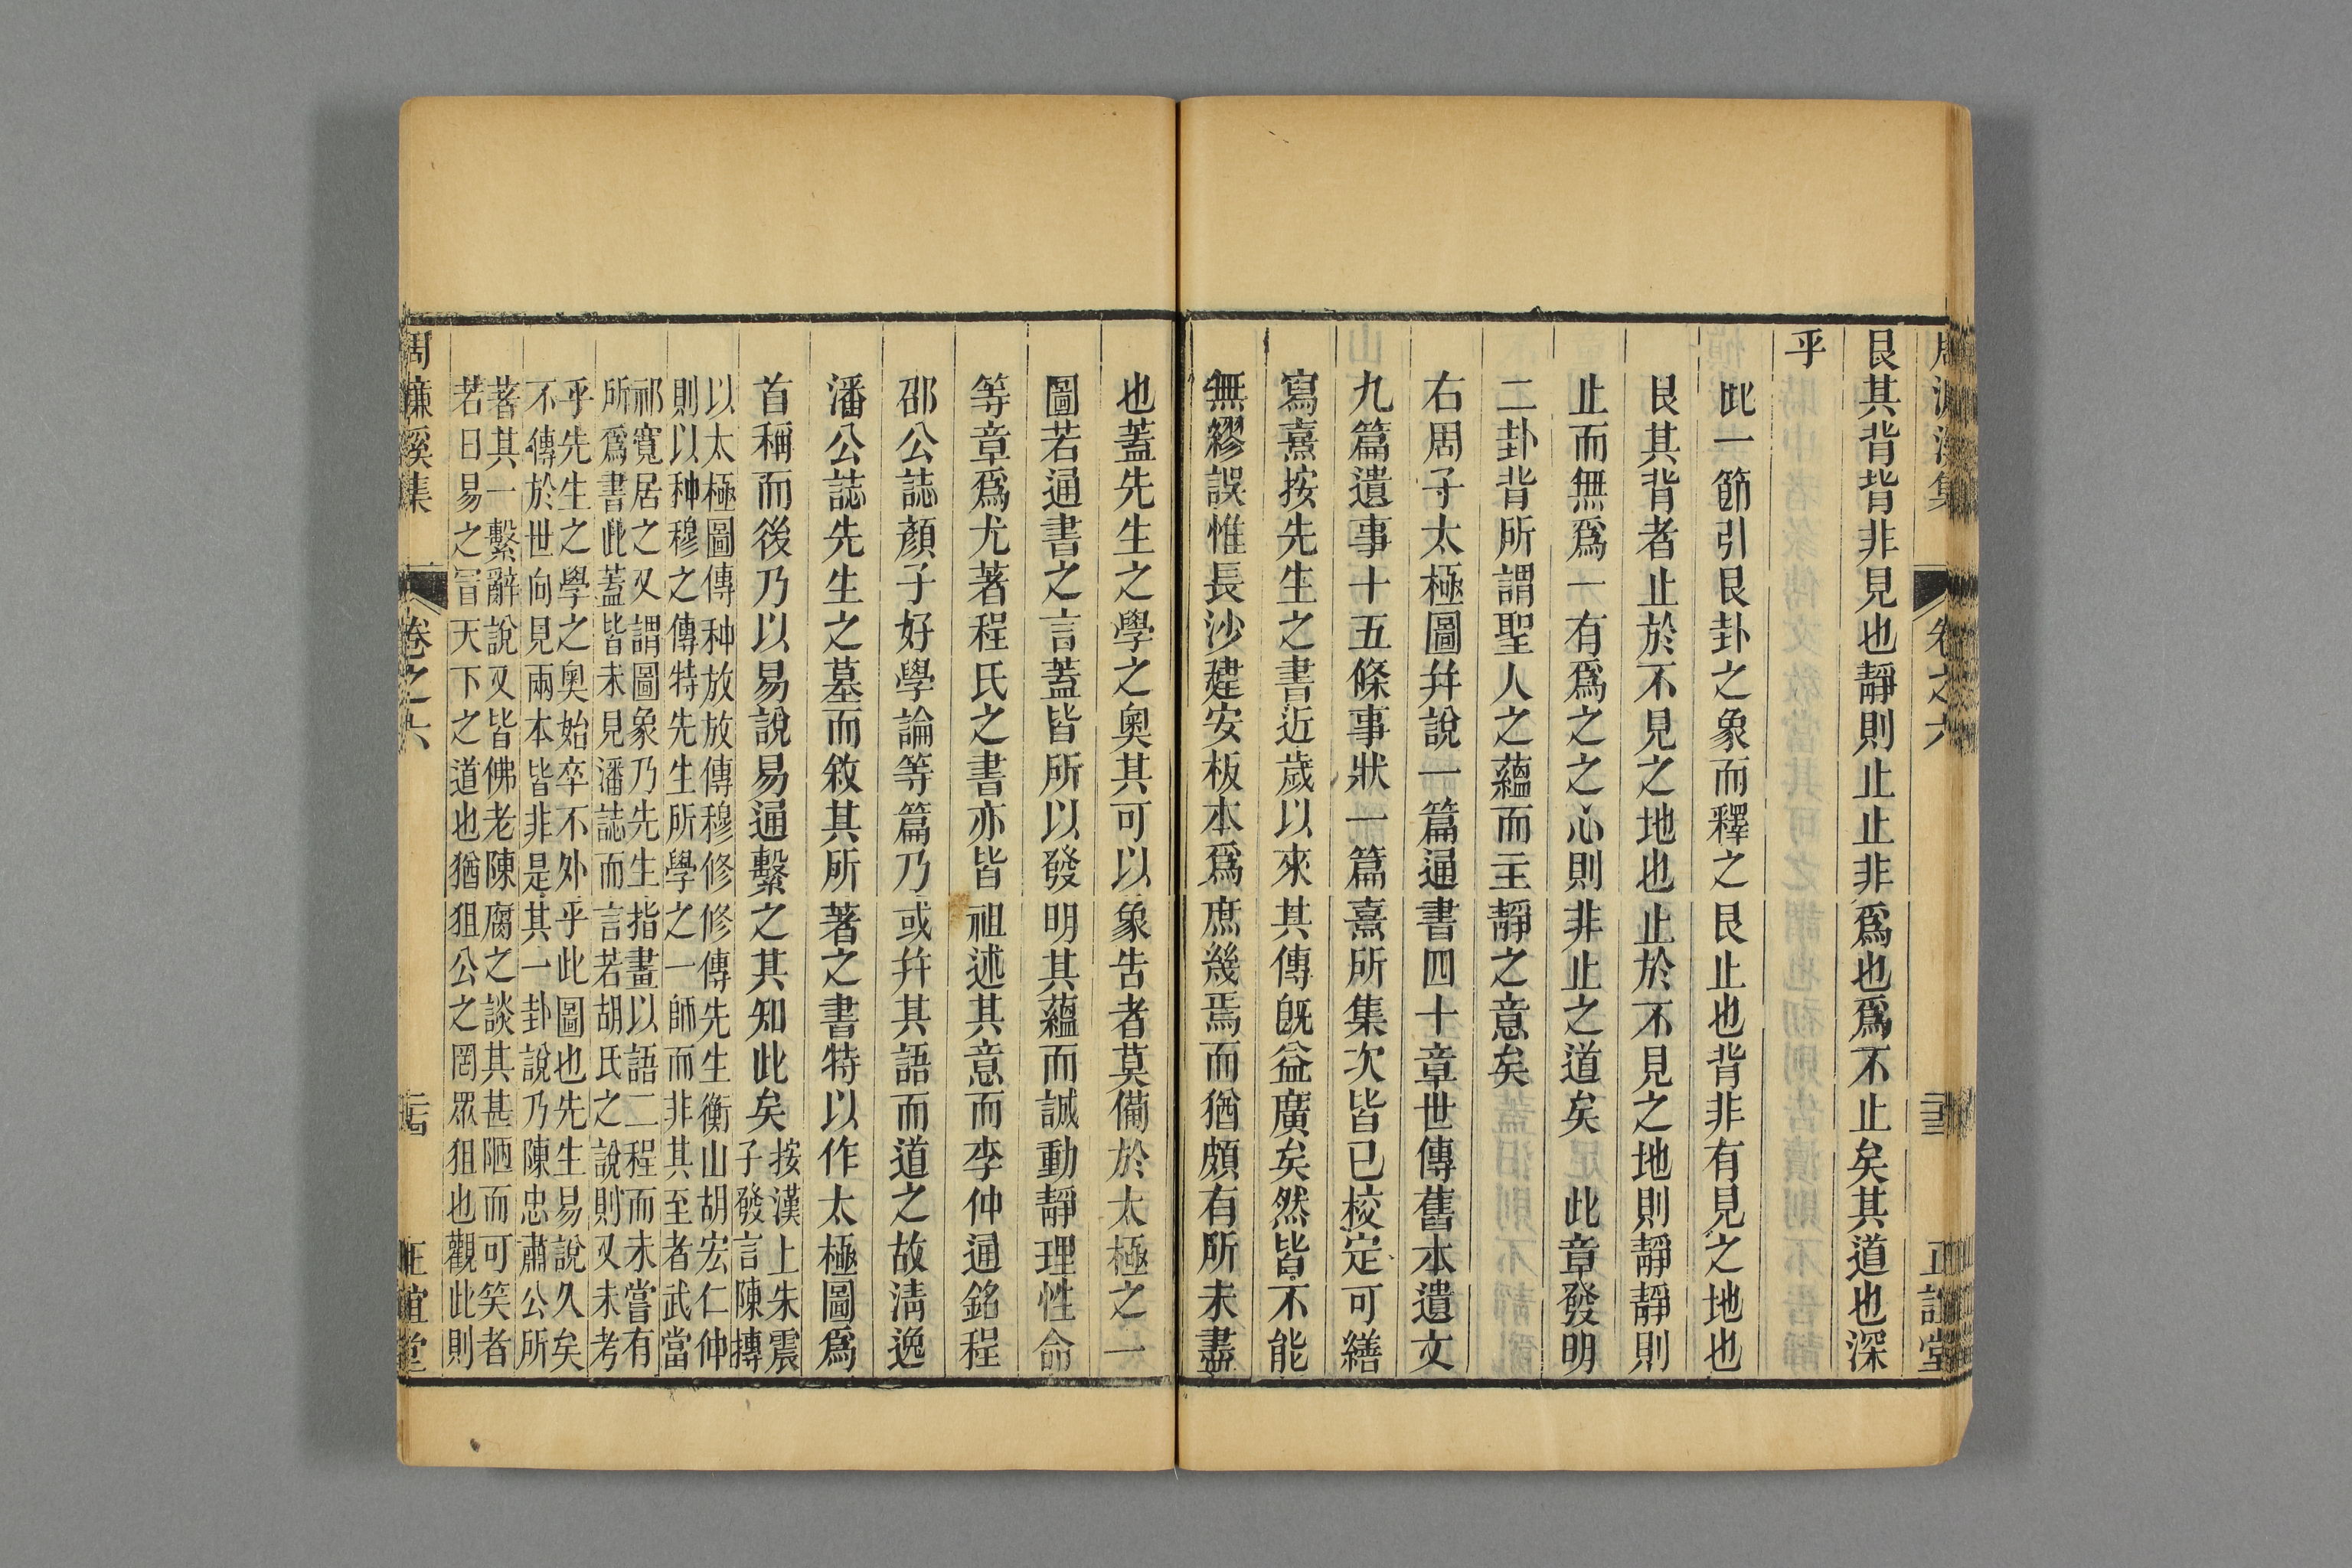 艮其背背非見也靜則止止非爲也爲不止矣其道也深
乎
此一節引艮卦之象而釋之艮止也背非有見之地也
艮其背者止於不見之地也止於不見之地則靜靜則
止而無爲一有爲之之心則非止之道矣　此章發明
二卦背所謂聖人之蘊而主靜之意矣
右周子太極圖幷說一篇通書四十章世傳舊本遺文
九篇遺事十五條事狀一篇熹所集次皆已校定可繕
寫熹按先生之書近歲以來其傳旣益廣矣然皆不能
無繆誤惟長沙建安板本爲庶幾焉而猶頗有所未盡
也蓋先生之學之奧其可以象告者莫備於太極之一
圖若通書之言蓋皆所以發明其蘊而誠動靜理性命
等章爲尤著程氏之書亦皆祖述其意而李仲通銘程
邵公誌顏子好學論等篇乃或幷其語而道之故淸逸
潘公誌先生之墓而敘其所著之書特以作太極圖爲
首稱而後乃以易說易通繫之其知此矣
按漢上朱震
子發言陳摶
以太極圖傳种放放傳穆修修傳先生衡山胡宏仁仲
則以种穆之傳特先生所學之一師而非其至者武當
祁寬居之又謂圖象乃先生指畫以語二程而未嘗有
所爲書此蓋皆未見潘誌而言若胡氏之說則又未考
乎先生之學之奧始卒不外乎此圖也先生易說久矣
不傳於世向見兩本皆非是其一卦說乃陳忠肅公所
著其一繫辭說又皆佛老陳腐之談其甚陋而可笑者
若曰易之冒天下之道也猶狙公之罔眾狙也觀此則
周濂溪集
卷之六
正誼堂